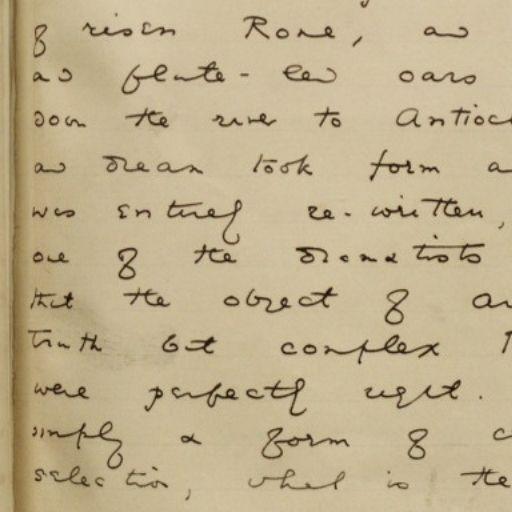 of risen Rome, and
and flute-led oars
down the river to Antioch
and dream took form a
was entirely re-written,
one of the dramatists
that the object of ar
truth but complex
were perfectly right.
simply a form of
selection, which is the